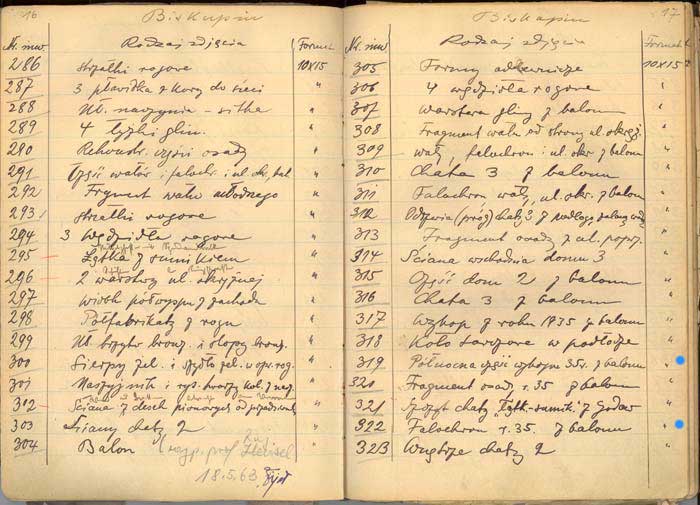 16 Biskupin
Nr. inw. Rodzaj zdjęcia Format
286 strzałki rogowe 10x15
287 3 pławidka z kory do sieci "
288 Uł. naczynia - sitka "
289 4 łyżki glin. "
290 Rekonstr. części osady "
291 Część wałów i falochr. i ul. okr. bal "
292 Frgment wału "
293 strzałki rogowe "
294 3 Wędzidła rogowe "
295 z "
296 2 warstwy ul. okrężnej "
297 Widok półwyspu z zachodu "
298 Półfabrikaty z rogu "
299 Uł. brzytw bronz. i "
300 Sierpy żel. i szydło żel. w opr. rog. "
301 "
302 Ściana z desch pionowych od "
303 Ściany chaty 2 "
304 Balon "
18.5.63.
Biskupin 17
Nr. inw. Rodzaj zdjęcia Format
305 Formy odlewnicze 10x15
306 4 wędzidła rogowe "
307 Warstwa gliny z balonu "
308 Fragment wału od strony ul. okręż. "
309 wały, falochron i ul. okr z balonu "
310 Chata 3 z balonu "
311 Falochron wały, ul. okr. z balonu "
312 Odrzwia (próg) chaty 3 z podłogą "
313 Fragment osady z ul. poprz. "
314 Ściana wschodnia domu 3 "
315 Część dom 2 z balonu "
316 Chata 3 z balonu "
317 Wykop z roku 1935 z balonu "
318 Koło tarczowe w podłożu "
319 Północna część wykopu 35 r. z balonu "
320 Fragment osady r. 35 z balonu "
321 chaty "
322 Falochron r. 35. z balonu "
323 Wnętrze chaty 2 "